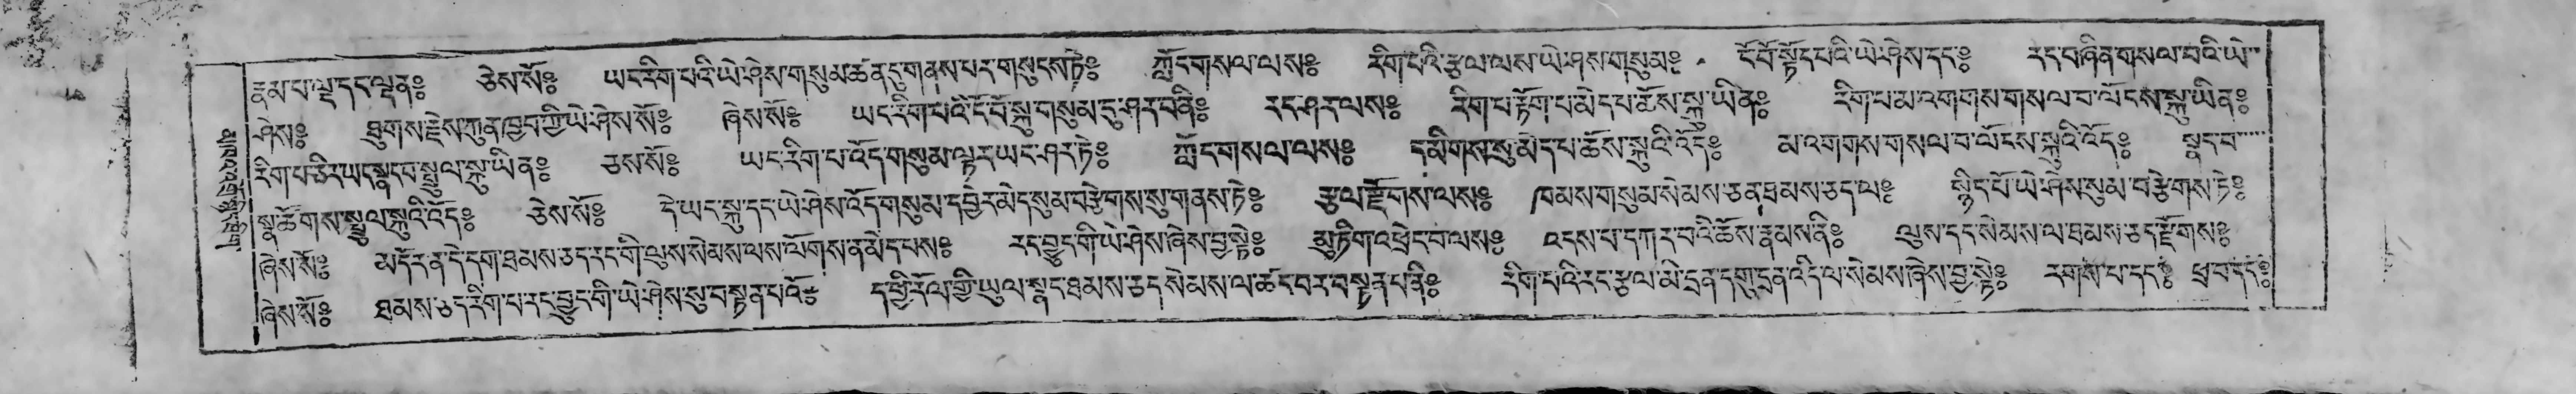 རྣམ་པ་ལྔ་དང་ལྡན༔ ཅེས་སོ༔ ཡང་རིག་པའི་ཡེ་ཤེས་གསུམ་ཚན་དུ་གནས་པར་གསུངས་ཏེ༔ ཀློང་གསལ་ལས༔ རིག་པའི་རྩལ་ལས་ཡེ་ཤས་གསུམ༔ ངོ་བོ་སྟོང་པའི་ཡེ་ཤེས་དང༔ རང་བཞིན་གསལ་བའི་ཡེ་
ཤེས༔ ཐུགས་རྗེས་ཀུན་ཁྱབ་ཀྱི་ཡེ་ཤེས་སོ༔ ཞེས་སོ༔ ཡང་རིག་པའི་ངོ་བོ་སྐུ་གསུམ་དུ་ཤར་བནི༔ རང་ཤར་ལས༔ རིག་པ་རྟོག་པ་མེད་པ་ཆོས་སྐུ་ཡིན༔ རིག་པ་མ་འགགས་གསལ་བ་ལོངས་སྐུ་ཡིན༔
རིག་པ་ཅིར་ཡང་སྣང་བ་སྤྲུལ་སྐུ་ཡིན༔ ཅས་སོ༔ ཡང་རིག་པ་འོད་གསུམ་ལྟར་ཡང་ཤར་ཏེ༔ ཀློང་གསལ་ལས༔ དམིགས་སུ་མེད་པ་ཆོས་སྐུའི་འོད༔ མ་འགགས་གསལ་བ་ལོངས་སྐུའི་འོད༔ སྣང་བ་
སྣ་ཚོགས་སྤྲུལ་སྐུའི་འོད༔ ཅེས་སོ༔ དེ་ཡང་སྐུ་དང་ཡེ་ཤེས་འོད་གསུམ་དབྱེར་མེད་སུམ་བརྩེགས་སུ་གནས་ཏེ༔ རྩལ་རྫོགས་ལས༔ ཁམས་གསུམ་སེམས་ཅན་ཐམས་ཅད་ལ༔ སྙིང་པོ་ཡེ་ཤེས་སུམ་བརྩེགས་ཏེ༔
ཞེས་སོ༔ མདོར་ན་དེ་དག་ཐམས་ཅད་རང་གི་ལུས་སེམས་ལས་ལོགས་ན་མེད་པས༔ རང་བྱུང་གི་ཡེ་ཤེས་ཞེས་བྱ་སྟེ༔ མུ་ཏིག་འཕྲེང་བ་ལས༔ འདས་པ་དཀར་བའི་ཆོས་རྣམས་ནི༔ ལུས་དང་སེམས་ལ་ཐམས་ཅད་རྫོགས༔
ཞེས་སོ༔ ཐམས་ཅད་རིག་པ་རང་བྱུང་གི་ཡེ་ཤེས་སུ་བསྟན་པའོ༔ ད་ཕྱི་རོལ་གྱི་ཡུལ་སྣང་ཐམས་ཅད་སེམས་ལ་ཚང་བར་བསྟན་པ་ནི༔ རིག་པའི་རང་རྩལ་མི་དྲན་དགུ་དྲན་འདི་ལ་སེམས་ཞེས་བྱ་སྟེ༔ རགས་པ་དང༔ ཕྲ་བ་དང༔